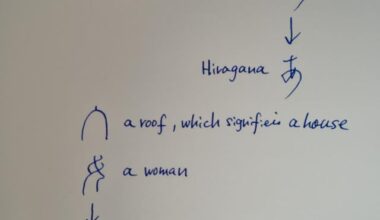 Hiragana あ
a roof, which signifieis a house
a woman